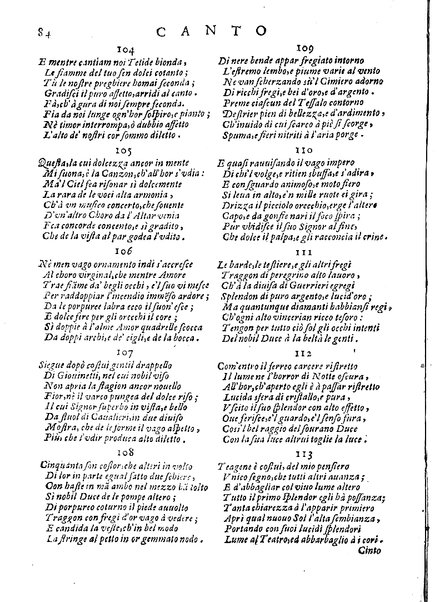 84 CANTO
104
E mentre cantiam noi Tetide bionda,
Le fiamme del tuo sen dolci cotanto;
Tù le nostre preghiere homai seconda,
Gradisci il puro affetto, arridi al canto.
Fà, ch'à gura di noi sempre seconda.
Fia da noi lunge ogn'hor sospiro, e pianto;
Nè timor interrompa, ò dubbio affetto
L'alto de' nostri cor sommo diletto.
105
Questa, la cui dolcezza ancor in mente
Mi suona, è la Canzon, ch'all' hor s'udìa:
Ma'l Ciel fea risonar sì dolcemente
La rara de le voci alta armonia,
Ch'à un musico concento, che fuente
D'un'altro Choro da l'Altar venia
Fea concorde concento, e sì gradito,
Che de la vista al par godea l'vdito.
106
Nè men vago ornamento indi s'accrebbe
Al choro virginal, che mentre Amore
Trae fiāme da' begli occhi, e'l suo vi mesce
Per raddoppiar l'incendio immēso ardore;
Da le porporee labra ecco il suon'esce;
E dolce fere per gli orecchi il core;
Sì doppie à l'alme Amor quadrelle scocca
Da doppi archi, e de' cigli, e de la bocca.
107
Siegue dopò costui gentil drappello
Di Giouinetti, nel cui nobil viso
Non apria la stagion ancor nouello
Fior, nè il varco pungea del dolce riso.
Il cui Signor superbo in vista, e bello
Da stuol di Caualieri, in due diuiso
Mostra, che de le forme il vago aspetto,
Più, che s'vdir produce alto diletto.
108
Cinquanta son costor, che alteri in volto
Di lor in parte equal fatto due schiere,
Con haste in mā ambo nel mezzo hā tolto
Sì nobil Duce de le pompe altero;
Di porpureo coturno il piede accolto
Traggon con fregi d'or vago à vedere;
E candida la veste, ch'in bel modo
La stringe al petto in gratioso nodo.
109
Di nere bende appar fregiato intorno
L'estremo lembo, e piume varie al vento
Ne van scherzando sù'l Cimiero adorno
Di ricchi fregi, e bei d'oro, e d'argento.
Preme ciascun del Tessalo contorno
Destrier pien di bellezza, e d'ardimento,
Ch'inuido di cui scarco à piè si scorge,
Spuma, e fieri nitriti à l'aria porge.
110
E quasi rauuisando il vago impero
Di chi'l volge, e ritien sbuffa, e s'adira;
E con sguardo animoso, e moto fiero
Si leua in alto, e'n mille ruote ei gira;
Drizza il picciolo orecchio, erge l'altero
Capo, e da gonfie nari il foco spira;
Pur vbidisce il suo Signor al fine,
Che dolce il palpa, e gli racconcia il crine.
111
Le barde, le testiere, e gli altri fregi
Traggon di peregrino alto lauoro,
Ch'à la diuisa di Guerrieri egregi
Splendon di puro argento, e lucid'oro;
Ma quantunque diamanti habbiansi regi,
Ch'ogni alto vincerian ricco tesoro:
Tengon per tutto ciò sol gli occhi intenti
Del nobil Duce à la beltà le genti.
112
Com'entro il ferreo carcere ristretto
Il lume ne l'horror di Notte oscura,
All'hor, ch'aperto egli è à passar ristretto
Lucida sfera di cristallo, e pura,
Vscito il suo splendor con alto effetto,
Que, che fuor'è, il guardo, e'l senso fura,
Così'l bel raggio del sourano Duce
Con la sua luce altrui toglie la luce.
113
Teagene è costui, del mio pensiero
Vnico segno, che tutti altri auanza;
E d'abbagliar col viuo lume altero
Tutto il primo splendor egli hà possanza;
Tanta chiarezza à l'apparir primiero
Aprì qual nouo Sol l'alta sembianza,
Portando con suoi lucidi splendori
Lume al Teatro, ed abbarbaglio ai cori.
Cinto